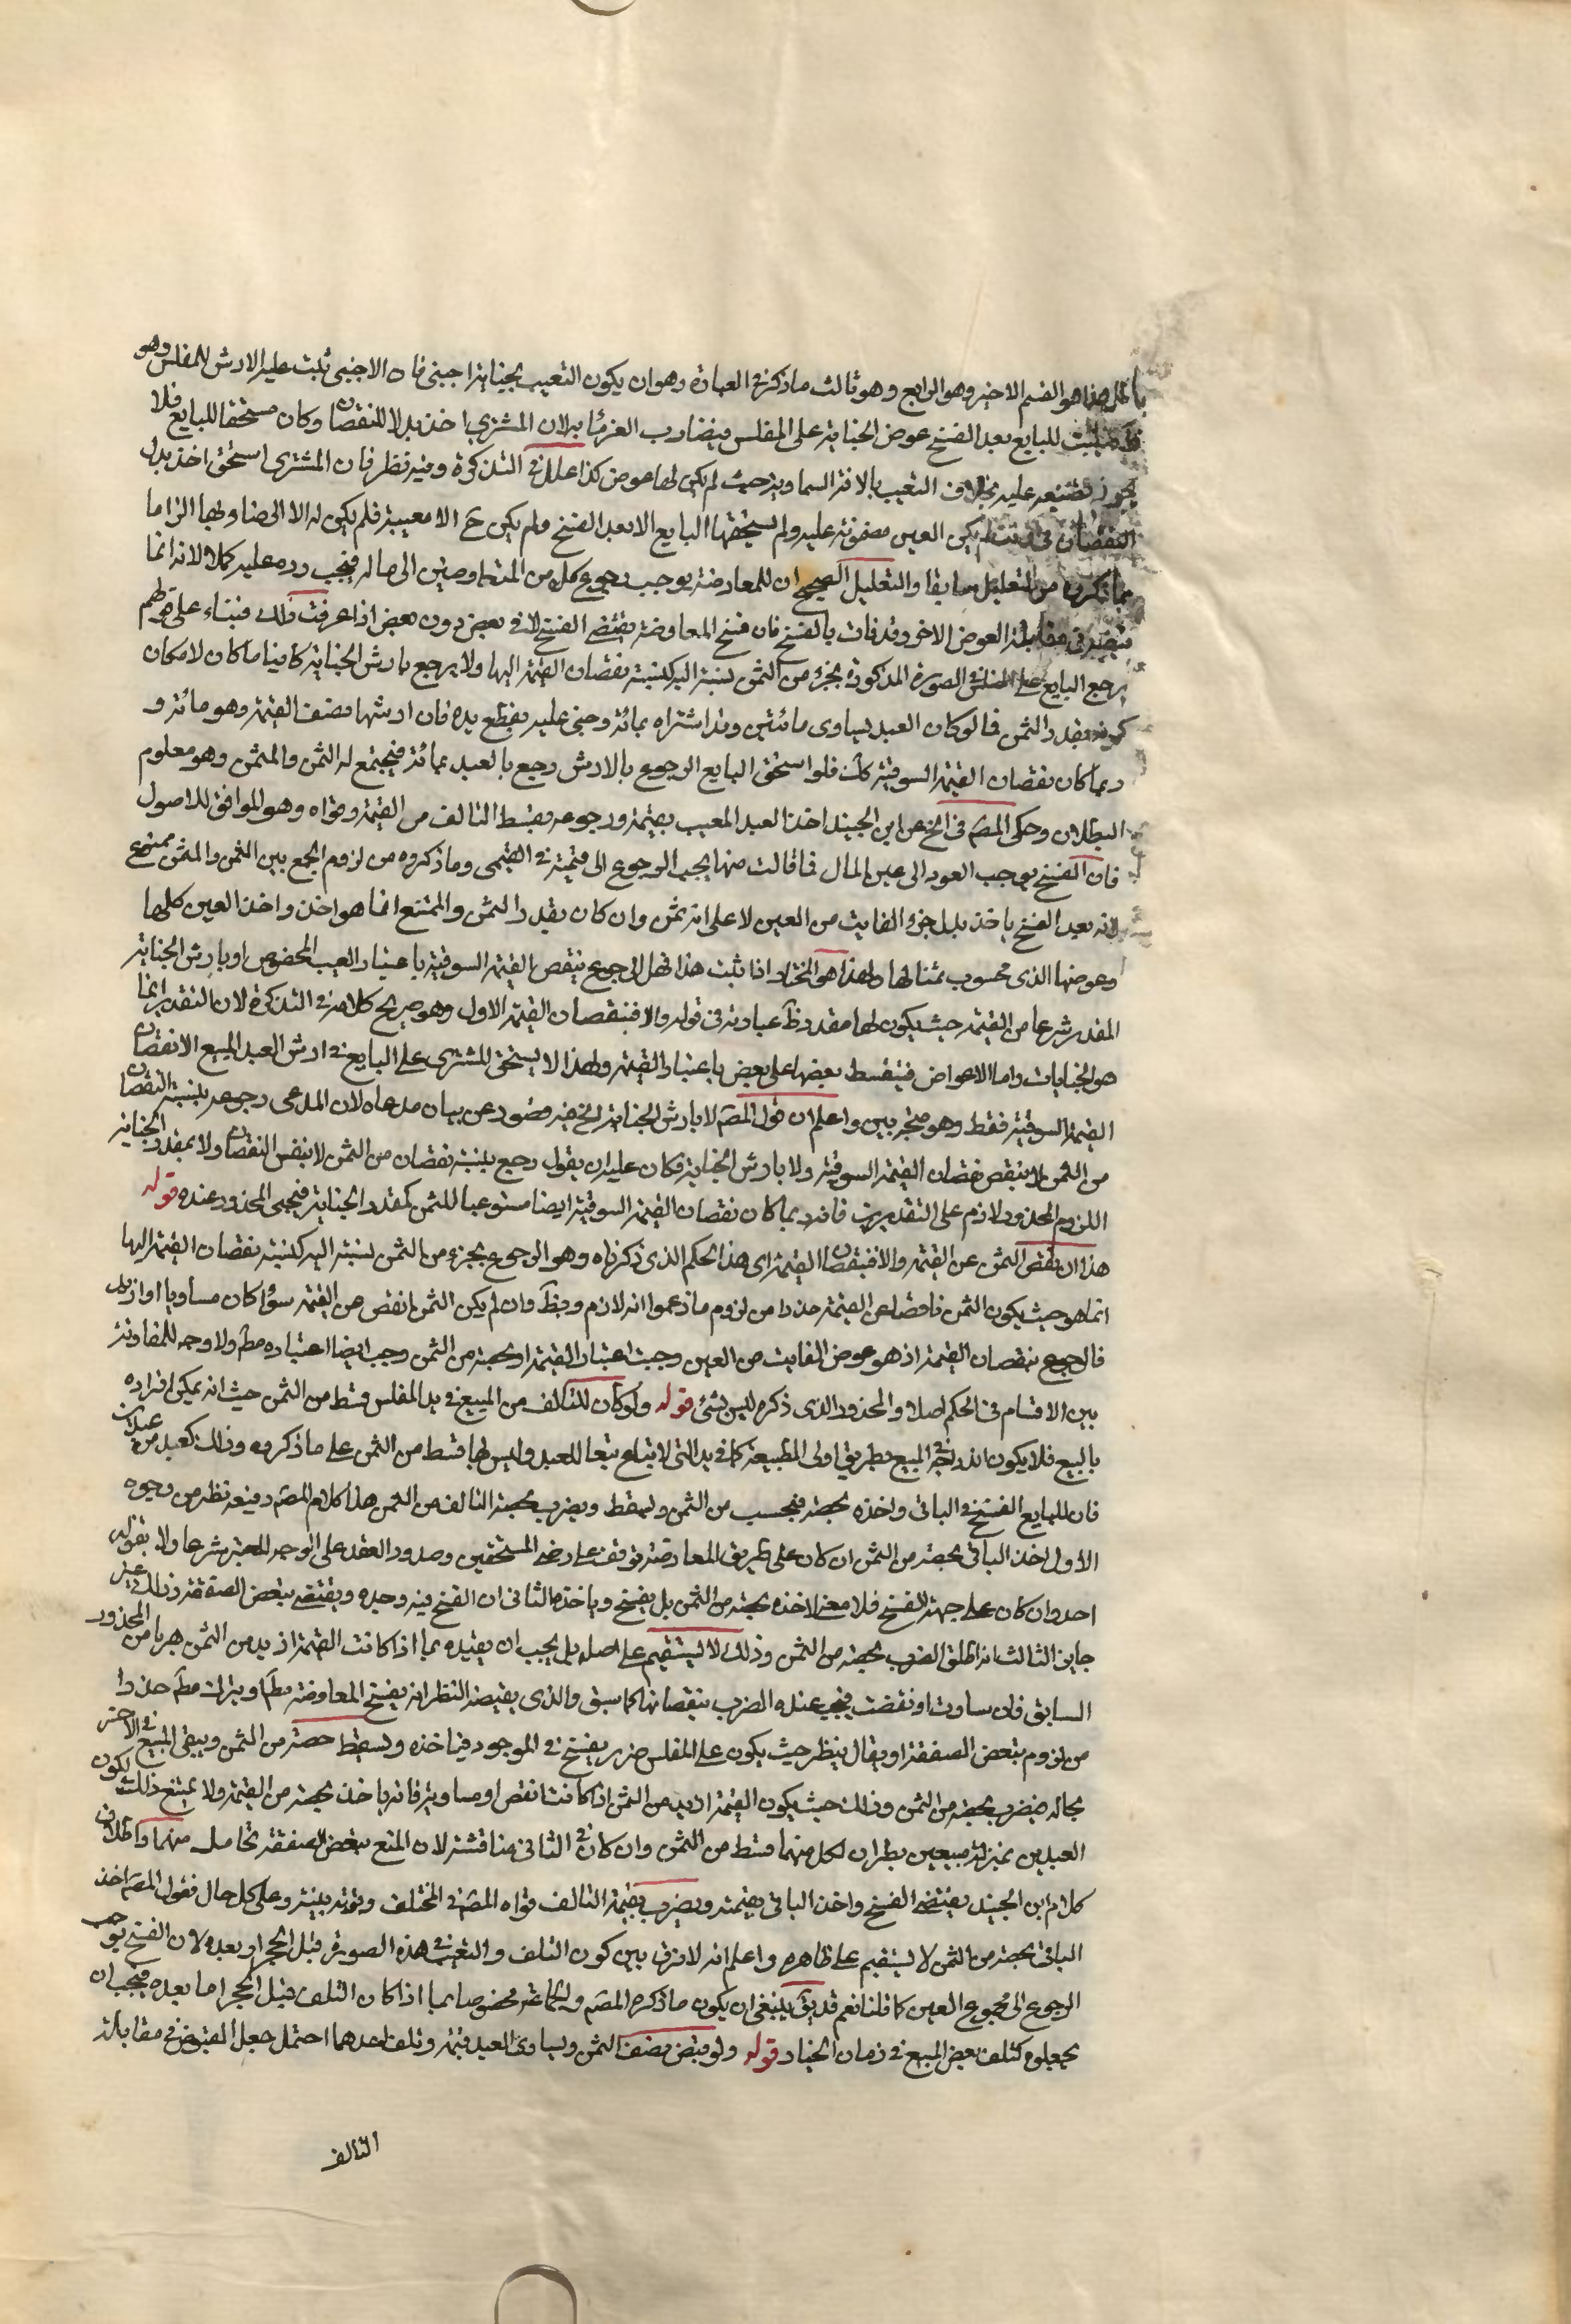 باطل هذا هو القسم الاخير وهو الرابع وهو ثالث ما ذكره في العبارة وهو ان يكون التعيب بجناية اجنبي فان الاجنبي ثبت عليه الارش للمفلس وهو
يثبت للبايع بعد الفسخ عوض الجناية على المفلس فيضارب الغرماء به لان المشتري اخذ بدلا للنقصان وكان مستحقا للبايع فلا
يجوز تضييعه عليه بخلاف التعيب بالافة السماوية حيث لم يكن لها عوض كذا علل في التذكرة وفيه نظر فان المشتري استحق اخذ بدل
النقصان في وقت لم يكن العين مضمونة عليه ولم يستحقها البايع الا بعد الفسخ ولم يكن ح الا معيبة فلم يكن له الا الرضا وبها الزاما
بما ذكروه من التعليل سابقا والتعليل الصحيح ان للمعاوضة يوجب رجوع كل من المتعاوضين الى ماله فيجب رده عليه كملا لانه انما
في مقابلة العوض الاخر وقد فات بالفسخ فان فسخ المعاوضة يقتضي الفسخ لا في بعض دون بعض اذا عرفت ذلك فبناء على قولهم
يرجع البايع على المفلس في الصورة المذكورة بجزء من الثمن نسبته اليه كنسبة نقصان القيمة اليها ولا يرجع بارش الجناية كاينا ما كان لامكان
كونه بقدر الثمن كما لو كان العبد يساوي مائتين وقد اشتراه بمائة وجنى عليه بقطع يده فان ارشها نصف القيمة وهو مائة و
ربما كان نقصان القيمة السوقية كك فلو استحق البايع الرجوع بالارش رجع بالعبد بمائة فيجتمع له الثمن والمثمن وهو معلوم
البطلان وحكى المصّ في الخ عن ابن الجنيد اخذ العبد المعيب بقيمته ورجوعه بقسط التالف من القيمة وقواه وهو الموافق للاصول
فان الفسخ يوجب العود الى عين المال فما فات منها يجب الرجوع الى قيمته في القيمي وما ذكروه من لزوم الجمع بين الثمن والمثمن ممتنع
لانه بعد الفسخ ياخذ بدل جزء الفايت من العين لا على انه ثمن وان كان بقدر الثمن والممتنع انما هو اخذ واخذ العين كلها
وعوضها الذي محسوب ثمنا لها وهذا هو المختار اذا ثبت هذا فهل الرجوع بنقص القيمة السوقية باعتبار العيب المخصوص او بارش الجناية
المقدر شرعا من القيمة حيث يكون لها مقدر وظّ عبارته في قوله والا فبنقصان القيمة الاول وهو صريح كلامه في التذكرة لان التقدير انما
هو للجنايات واما الاعواض فيتقسط بعضها على بعض باعتبار القيمة ولهذا لا يستحق المشتري على البايع في ارش العبد المبيع الا نقصان
القيمة السوقية فقط وهو متجه بين واعلم ان قول المصّ لا بارش الجناية الخ فيه قصور عن بيان مدعاه لان المدعى رجوعه بنسبة النقصان
من الثمن لا بنقص نقصان القيمة السوقية ولا بارش الجناية فكان عليه ان يقول رجع بنسبة نقصان من الثمن لا بنفس النقصان ولا بمقدر الجناية
اللزوم المحذور لازم على التقديرين فانه ربما كان نقصان القيمة السوقية ايضا مستوعبا للثمن كمقدر الجناية فيجي المحذور عنده قوله
هذا ان نقص الثمن عن القيمة والا فبنقصان القيمة اى هذا الحكم الذي ذكرناه وهو الرجوع بجزء من الثمن نسبته اليه كنسبة نقصان القيمة اليها
انما هو حيث يكون الثمن ناقصا عن القيمة حذرا من لزوم ما زعموا انه لازم وبظّ وان لم يكن الثمن انقص من القيمة سواء كان مساويا او ازيد
فالرجوع بنقصان القيمة اذ هو عوض الفايت من العين وجبت اعتبار القيمة او بحصة من الثمن وجب ايضا اعتباره مطّ ولا وجه للمفاوتة
بين الاقسام في الحكم اصلا والمحذور الذي ذكره ليس بشئ قوله ولو كان للتالف من المبيع في يد المفلس قسط من الثمن حيث انه يمكن افراده
بالبيع فلا يكون اندراجه في المبيع بطريق اولى الطبيعة كما في يد التي لا تباع تبعا للعبد وليس لها قسط من الثمن على ما ذكروه وذلك كعبد من عبدين
فان للبايع الفسخ في الباقي واخذه بحصته فيحسب من الثمن ويسقط ويضرب بحصة التالف من الثمن هذا كلام المصّ وفيه نظر من وجوه
الاول اخذ الباقي بحصته من الثمن ان كان على طريق المعاوضة توقف على رضى المستحقين وصدور العقد على الوجه المعتبر شرعا ولا يقوله
احد وان كان على جهة الفسخ فلا معنى لاخذه بحصته من الثمن بل يفسخ وياخذه الثاني ان الفسخ فيه وحده ويقتضي تبعض الصفقة وذلك غير
جايز الثالث انه اطلق الضرب بحصته من الثمن وذلك لا يستقيم على اصله بل يجب ان يقيده بما اذا كانت القيمة ازيد من الثمن هربا من المحذور
السابق فان ساوت او نقصت فيجي عنده الضرب بنقصانها كما سبق والذي يقتضيه النظر انه يفسخ المعاوضة مطّ او يترك مطّ حذرا
من لزوم تبعض الصفقة او يقال ينظر حيث يكون على المفلس ضرر يفسخ في الموجود فياخذه ويسقط حصته من الثمن ويبقى المبيع في الاخر
بحاله فيضرب بحصته من الثمن وذلك حيث يكون القيمة ازيد من الثمن اذا كانت انقص او مساوية فانه ياخذ بحصته من القيمة ولا يمتنع ذلك لكون
العبدين بمنزلة مبيعين بطران لكل منهما قسط من الثمن وان كان في الثاني مناقشة لان المنع تبعض الصفقة حاصل منهما واطلاق
كلام ابن الجنيد يقتضي الفسخ واخذ الباقي بقيمته ويضرب بقيمة التالف قواه المصّ في المختلف وقوته بينة وعلى كل حال فقول المصّ اخذ
الباقي بحصته من الثمن لا يستقيم على ظاهره واعلم انه لا فرق بين كون التلف والتعيب في هذه الصورة قبل الحجر او بعده لان الفسخ يوجب
الرجوع الى مجموع العين كما قلنا نعم قد يق ينبغي ان يكون ما ذكره المصّ والجماعة مخصوصا بما اذا كان التلف قبل الحجر اما بعده فيجب ان
يجعلوه كتلف بعض المبيع في زمان الخيار قوله ولو قبض نصف الثمن ويساوى العبد قيمة وتلف احدهما احتمل جعل المقبوض في مقابلة
التالف